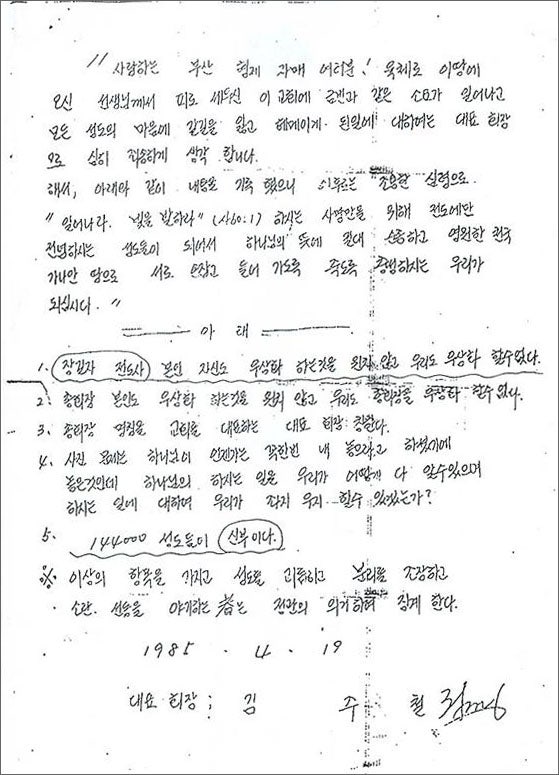 " 사랑하는 부산 형제 자매 여러분! 육체로 이땅에
오신 선생님께서 피로 세우신 이 교회에 금번과 같은 소요가 일어나고
모든 성도의 마음에 갈길을 잃고 헤메이게 된일에 대하여는 대표 회장
으로 심히 죄송하게 생각 합니다.
해서, 아래와 같이 내용을 기록 했으니 조용한 심령으로
"일어나라. 빛을 발하라" (사60:1) 하시는 사명만을 위해 전도에만
전념하시는 성도들이 되어서 하나님의 뜻에 절대 순종하고 영원한 천국
가나안 땅으로 서로 손잡고 들어 가도록 죽도록 충성하시는 우리가
되십시다. "
아 래
1. 장길자 전도사 본인 자신도 우상화 하는것을 원치 않고 우리도 우상화 할수없다.
2. 총회장 본인도 우상화 하는것을 원치 않고 우리도 총회장을 우상화 할수 없다.
3. 총회장 명칭을 교회를 대표하는 대표 회장 칭한다.
4. 사진 문제는 하나님이 언젠가는 꼭한번 내 놓으라고 하셨기에
놓은것인데 하나님의 하시는 일을 우리가 어떻게 다 알수있으며
하시는 일에 대하여 우리가 좌지 우지 할수 있겠는가?
5. 144000 성도들이 신부이다.
※ 이상의 항목을 가지고 성도를 괴롭히고 분리를 조장하고
소란. 선동을 야기하는 者는 전관의 의거하여 징계 한다.
1985 . 4 . 19
대표 회장 ; 김 주 철